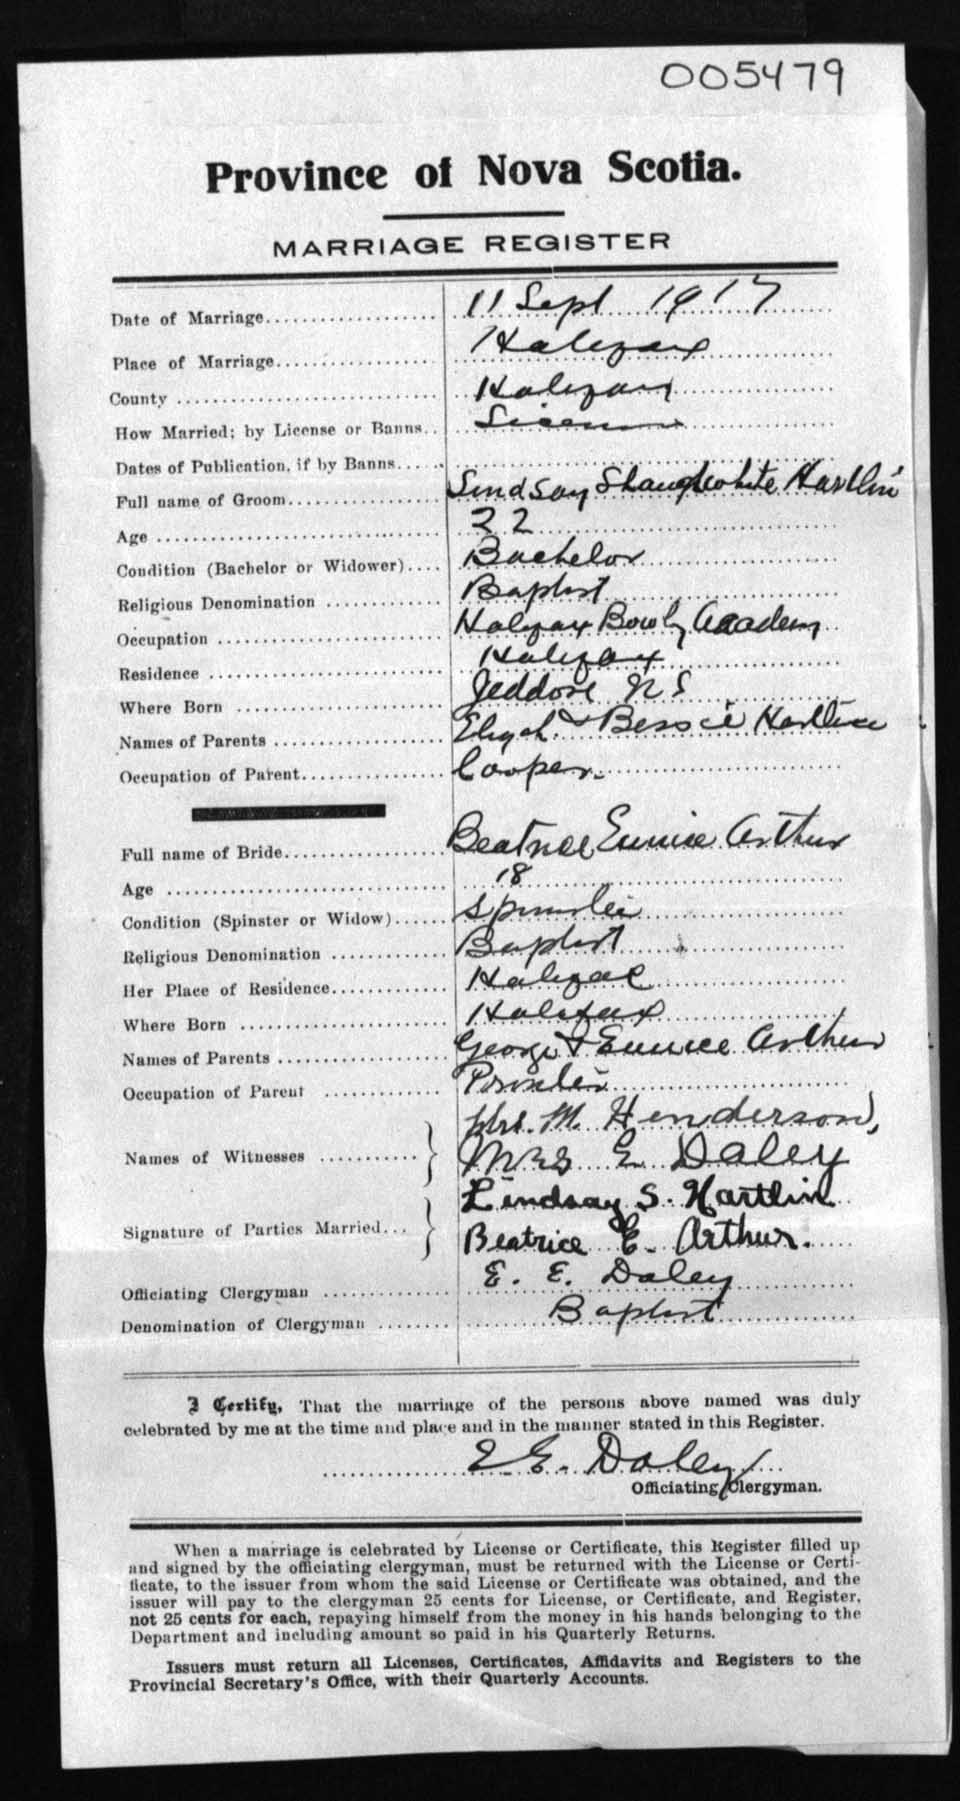 005479
Province of Nova Scotia.
MARRIAGE REGISTER
Date of Marriage.................... 11 Sept 1917
Place of Marriage................... Halifax
County .............................. Halifax
How Married; by License or Banns.. License
Dates of Publication, if by Banns.....
Full name of Groom.................. Lindsay Hartlin
Age ................................. 22
Condition (Bachelor or Widower).... Bachelor
Religious Denomination ............. Baptist
Occupation ......................... Halifax Bowlg Academy
Residence .......................... Halifax
Where Born ........................ Jeddore N S
Names of Parents ................... Elijah & Bessie Hartlin
Occupation of Parent................ Cooper.
Full name of Bride.................. Beatrice Eunice Arthur
Age ................................. 18
Condition (Spinster or Widow)...... Spinster
Religious Denomination ............. Baptist
Her Place of Residence............. Halifax
Where Born ........................ Halifax
Names of Parents ................... George & Eunice Arthur
Occupation of Parent .............. Printer
Names of Witnesses ........... } Mrs. M. Henderson,
Mrs E. Daley
Signature of Parties Married... } Lindsay S. Hartlin
Beatrice E. Arthur.
Officiating Clergyman .............. E. E. Daley
Denomination of Clergyman ........ Baptist
I Certify, That the marriage of the persons above named was duly
celebrated by me at the time and place and in the manner stated in this Register.
E E. Daley
Officiating Clergyman.
When a marriage is celebrated by License or Certificate, this Register filled up
and signed by the officiating clergyman, must be returned with the License or Certi-
ficate, to the issuer from whom the said License or Certificate was obtained, and the
issuer will pay to the clergyman 25 cents for License, or Certificate, and Register,
not 25 cents for each, repaying himself from the money in his hands belonging to the
Department and including amount so paid in his Quarterly Returns.
Issuers must return all Licenses, Certificates, Affidavits and Registers to the
Provincial Secretary's Office, with their Quarterly Accounts.